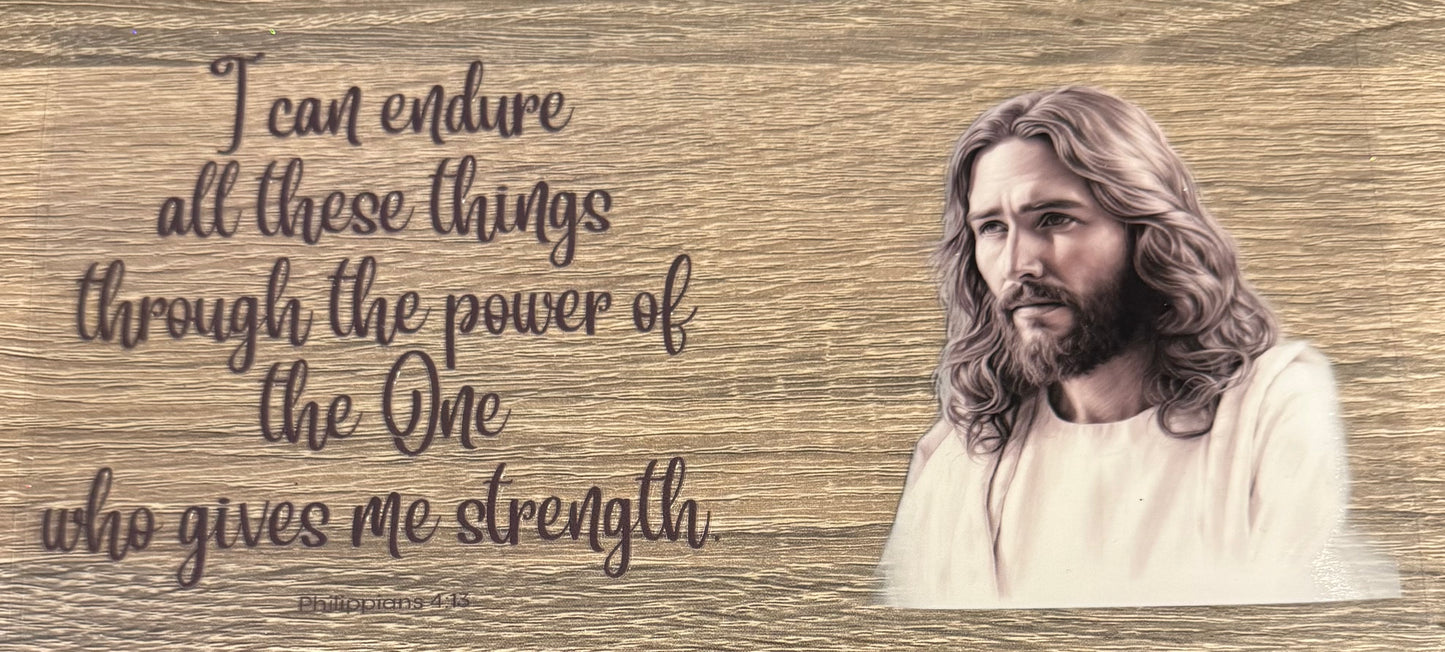 I can endure
all these things
through the power of
the One
who gives me strength.
Philippians 4:13